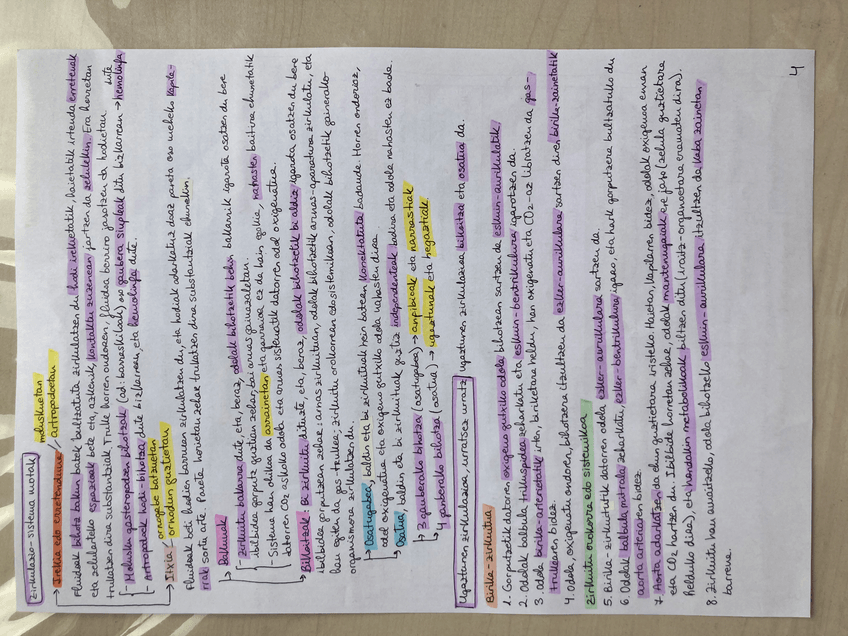 Zirkulazio-sistema motak
→ Irekia edo erretenduna / moluskuetan / artropodoetan
Fluidoak bihotz batek bultzatuta zirkulatzen du hodi irekietatik, haietatik irtenda erretenak
eta zelularteko espazioak bete eta, azkenik, kontaktu zuzenean jartzen da zelulekin. Era horretan
trukatzen dira substantziak. Truke horren ondoren, fluidoa berriro jasotzen da hodietan.
- Molusku gasteropodoen bihotzak (ad: barraskiloak) oso ganbera sinpleak ditu bizkarrean → hemolinfa dute
- Artropodoek hodi-bihotza dute bizkarrean, eta hemolinfa dute.
→ Itxia / ornogabe batzuetan / ornodun guztietan
Fluidoak beti hodien barruan zirkulatzen du, eta hodiak adarkatuz doaz pareta oso meheko kapila-
rrak sortu arte. Pareta horietan zehar trukatzen dira substantziak ehunekin.
→ Bakunak
- Zirkuitu bakarra dute, eta, beraz, odolak bihotzetik behin bakarrik igarota osatzen du bere
ibilbidea gorputz guztian zehar bai arnas gainazaletan.
- Sistema hau ohikoa da arrainetan eta arraroa ez da hain egokia, nahasten baitira ehunetatik
datorren CO2 askoko odola eta arnas sistematik datorren odol oxigenatua.
→ Bikoitzak: Bi zirkuitu dituzte, eta, beraz, odolak bihotzetik bi aldiz igarota osatzen du bere
ibilbidea gorputzean zehar: arnas zirkuituan, odolak bihotzetik arnas-aparatura zirkulatu, eta
han egiten da gas-trukea; zirkuitu orokorrean edo sistemikoan: odolak bihotzetik gainerako
organismora zirkulatzen du.
→ Osatugabea, baldin eta bi zirkuituak zein batean konektatuta badaude. Horren ondorioz,
odol oxigenatua eta oxigeno gutxiko odola nahasten dira.
→ Osatua, baldin eta bi zirkuituak guztiz independenteak badira eta odola nahasten ez bada.
→ 3 ganberako bihotza (osatugabea) → anfibioak eta narrastiak
→ 4 ganberako bihotza (osatua) → ugaztunak eta hegaztiak
Ugaztunen zirkulazioa, urratsez urrats
Ugaztunen zirkulazioa bikoitza eta osatua da.
Birika-zirkuitua
1. Gorputzetik datorren oxigeno gutxiko odola bihotzean sartzen da eskuin-aurikulatik
2. Odolak balbula trikuspidea zeharkatu eta eskuin-bentrikulura igarotzen da.
3. Odola birika-arterietatik irten, biriketara heldu, han oxigenatu eta CO2-az libratzen da gas-
trukearen bidez.
4. Odola, oxigenatu ondoren, bihotzera itzultzen da ezker-aurikulara sartzen diren birika-zainetatik
Zirkuitu orokorra edo sistemikoa
5. Birika-zirkuitutik datorren odola ezker-aurikulara sartzen da.
6. Odolak balbula mitrala zeharkatu, ezker-bentrikulura igaro, eta hark gorputzera bultzatuko du
aorta arteriaren bidez.
7. Aorta adarkatzen da ehun guztietara iristeko. Haietan, kapilarren bidez, odolak oxigenoa eman
eta CO2 hartzen du. Ibilbide horretan zehar, odolak mantenugaiak ere jaso (zelula guztietara
helduko dira), eta hondakin metabolikoak biltzen ditu (iraitz-organoetara eramaten dira).
8. Zirkuitu hau amaitzeko, odola bihotzeko eskuin-aurikulara itzultzen da kaba zainetan
barrena.
4